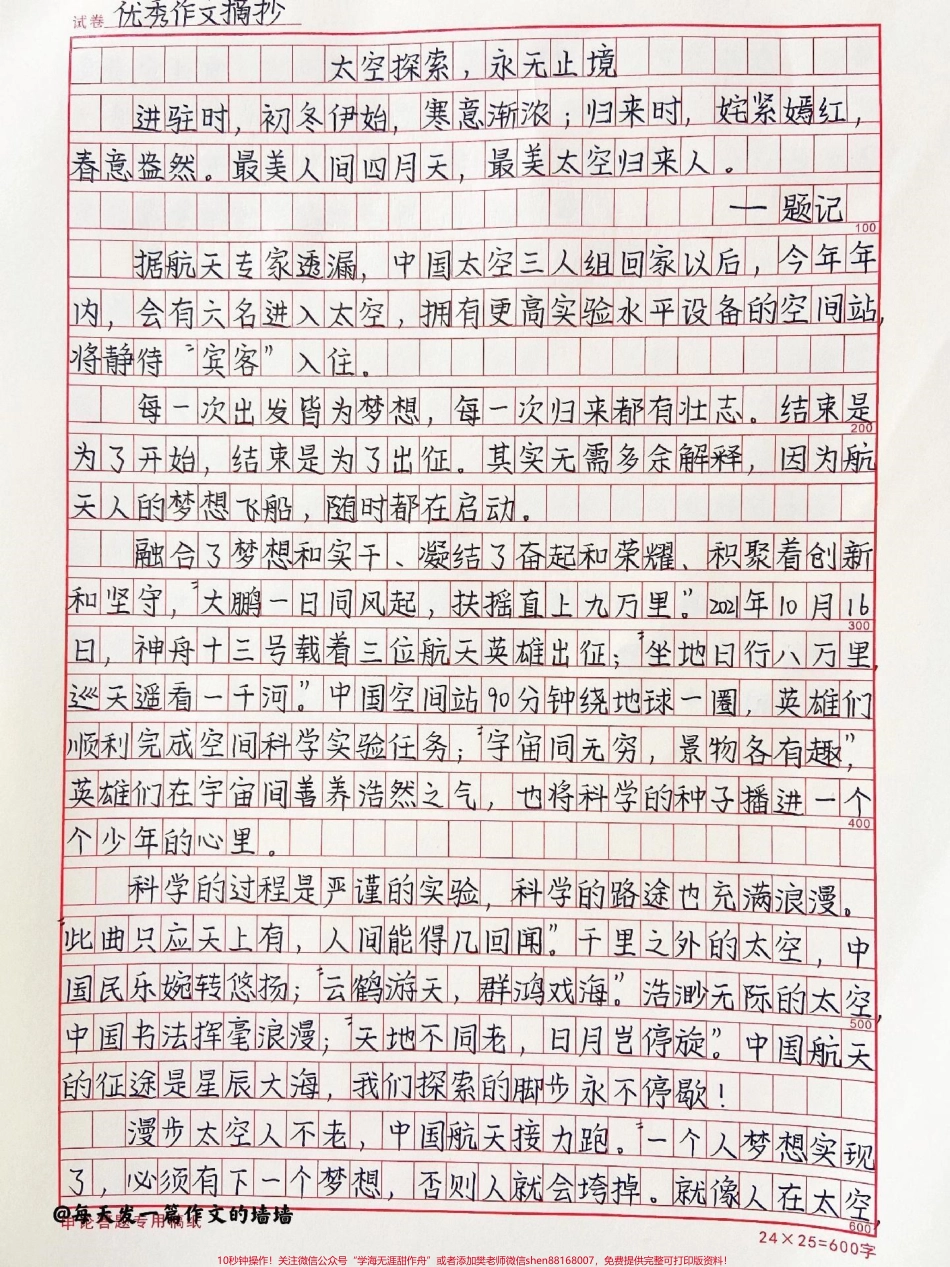 试卷 优秀作文摘抄
太空探索，永无止境
进驻时，初冬伊始，寒意渐浓；归来时，姹紧嫣红，
春意盎然。最美人间四月天，最美太空归来人。
— 题记
100
据航天专家透漏，中国太空三人组回家以后，今年年
内，会有六名进入太空，拥有更高实验水平设备的空间站，
将静待“宾客”入住。
每一次出发皆为梦想，每一次归来都有壮志。结束是
200
为了开始，结束是为了出征。其实无需多余解释，因为航
天人的梦想飞船，随时都在启动。
融合了梦想和实干、凝结了奋起和荣耀、积聚着创新
和坚守，“大鹏一日同风起，扶摇直上九万里。”2021年10月16
300
日，神舟十三号载着三位航天英雄出征；“坐地日行八万里，
巡天遥看一千河。”中国空间站90分钟绕地球一圈，英雄们
顺利完成空间科学实验任务；“宇宙同无穷，景物各有趣”，
英雄们在宇宙间善养浩然之气，也将科学的种子播进一个
400
个少年的心里。
科学的过程是严谨的实验，科学的路途也充满浪漫。
“此曲只应天上有，人间能得几回闻”。千里之外的太空，中
国民乐婉转悠扬；“云鹤游天，群鸿戏海”。浩渺无际的太空，
500
中国书法挥毫浪漫；“天地不同老，日月岂停旋”。中国航天
的征途是星辰大海，我们探索的脚步永不停歇！
漫步太空人不老，中国航天接力跑。“一个人梦想实现
了，必须有下一个梦想，否则人就会垮掉。就像人在太空，
600
@每天发一篇作文的墙墙
申论答题专用稿纸
24×25=600字
10秒钟操作！关注微信公众号“学海无涯甜作舟”或者添加樊老师微信shen88168007，免费提供完整可打印版资料！